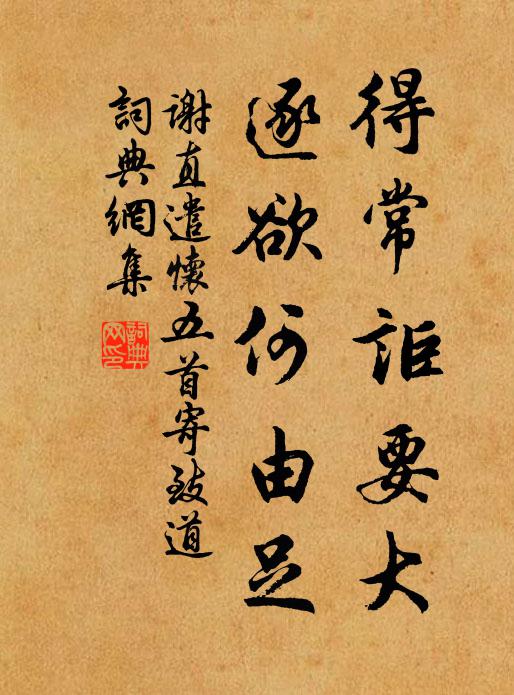 得常詎要大
逐欲何由足
謝直遣懷五首寄致道
詞典網集
詞典网印